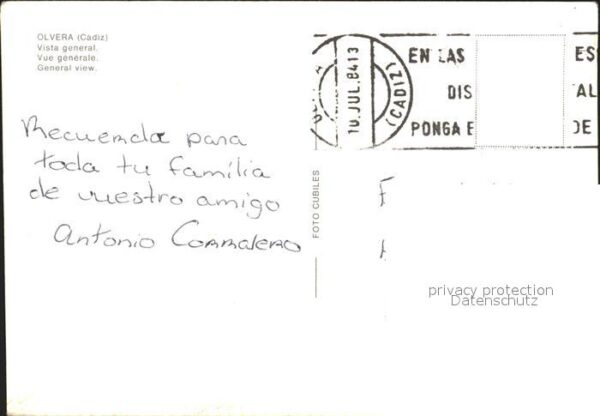 OLVERA (Cadiz)
Vista general.
Vue générale.
General view.
10.JUL.84 13
(CADIZ)
EN LAS ES
DIS AL
PONGA E DE
Recuerda para
toda tu família
de vuestro amigo
Antonio Corralero
FOTO CUBILES
privacy protection
Datenschutz